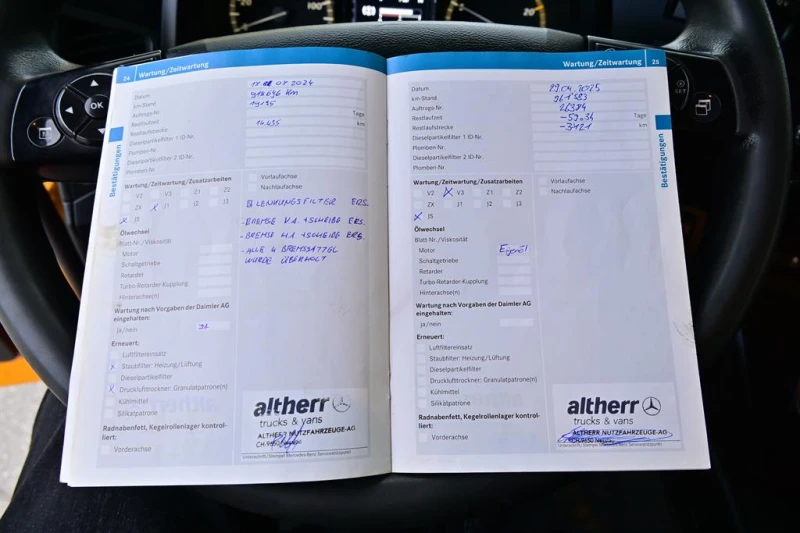 100
20
OK
24 Wartung/Zeitwartung
07 2024
km-Stand
Auftrags-Nr.
Restlaufzeit Tage
Restlaufstrecke 14.495 km
Dieselpartikelfilter 1 ID-Nr.
Plomben-Nr.
Dieselpartikelfilter 2 ID-Nr.
Plomben-Nr.
Bestätigungen
Wartung/Zeitwartung/Zusatzarbeiten
Vorlaufachse
Nachlaufachse
V2 V3 Z1 Z2
ZX x J1 J2 J3
x J5
LENKUNGSFILTER ERS.
- BREMSE V.A. + SCHEIBE ERS.
- BREMSE H.A. + SCHEIBE ERS.
- ALLE 4 BREMSSATTEL
WURDE ÜBERHOLT
Ölwechsel
Blatt-Nr./Viskosität
Motor
Schaltgetriebe
Retarder
Turbo-Retarder-Kupplung
Hinterachse(n)
Wartung nach Vorgaben der Daimler AG
eingehalten:
ja/nein
Erneuert:
Luftfiltereinsatz
x Staubfilter: Heizung/Lüftung
Dieselpartikelfilter
x Drucklufttrockner: Granulatpatrone(n)
Kühlmittel
Silikatpatrone
Radnabenfett, Kegelrollenlager kontrol-
liert:
Vorderachse
altherr
trucks & vans
ALTHERR NUTZFAHRZEUGE-AG
Unterschrift/Stempel Mercedes-Benz Servicestützpunkt
Wartung/Zeitwartung 25
Datum 29.04.2025
km-Stand 961'583
Auftrags-Nr. 26384
Restlaufzeit Tage
Restlaufstrecke -3421 km
Dieselpartikelfilter 1 ID-Nr.
Plomben-Nr.
Dieselpartikelfilter 2 ID-Nr.
Plomben-Nr.
Bestätigungen
Wartung/Zeitwartung/Zusatzarbeiten
Vorlaufachse
Nachlaufachse
V2 x V3 Z1 Z2
ZX J1 J2 J3
x J5
Ölwechsel
Blatt-Nr./Viskosität
Motor Eigenöl
Schaltgetriebe
Retarder
Turbo-Retarder-Kupplung
Hinterachse(n)
Wartung nach Vorgaben der Daimler AG
eingehalten:
ja/nein
Erneuert:
Luftfiltereinsatz
Staubfilter: Heizung/Lüftung
Dieselpartikelfilter
Drucklufttrockner: Granulatpatrone(n)
Kühlmittel
Silikatpatrone
Radnabenfett, Kegelrollenlager kontrol-
liert:
Vorderachse
altherr
trucks & vans
ALTHERR NUTZFAHRZEUGE-AG
Unterschrift/Stempel Mercedes-Benz Servicestützpunkt